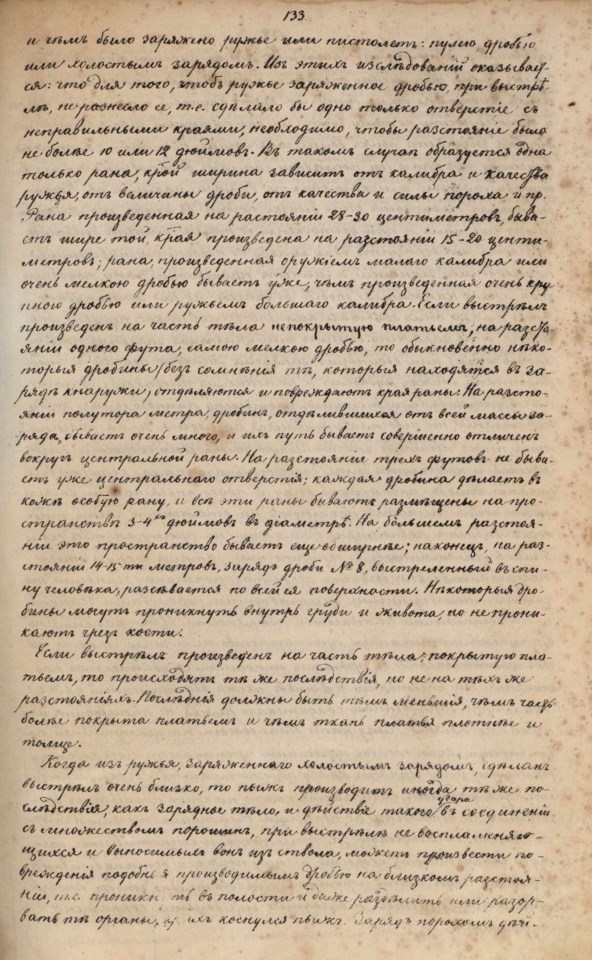 133.
и чѣмъ было заряжено ружье или пистолетъ: пулею, дробью
или холостымъ зарядомъ. Изъ этихъ изслѣдованій оказывает-
ся: что для того, чтобъ ружье заряженное дробью, при выстрѣ-
лѣ, не разнесло ее, т.е. сдѣлало бы одно только отверстіе съ
неправильными краями, необходимо, чтобы разстояніе было
не болѣе 10 или 12 дюймовъ. Въ такомъ случаѣ образуется одна
только рана, крой ширина зависитъ отъ калибра и качества
ружья, отъ величины дроби, отъ качества и силы пороха и пр.
Рана произведенная на растояніи 28-30 центиметровъ, быва-
етъ шире той, края произведена на разстояніи 15-20 центи-
метровъ; рана, произведенная оружіемъ малаго калибра или
очень мелкою дробью бываетъ уже, чѣмъ произведенная очень кру
пною дробью или ружьемъ большаго калибра. Если выстрѣлъ
произведенъ на часть тѣла непокрытую платьемъ, на разсто-
яніи одного фута, самою мелкою дробью, то обыкновенно нѣко-
торыя дробины (безъ сомнѣнія тѣ, которыя находятся въ за-
рядѣ кнаружи) отдѣляются и повреждаютъ края раны. На разсто-
яніи полутора метра, дробинъ, отдѣлившихся отъ всей массы за-
ряда, бываетъ очень много, и ихъ путь бываетъ совершенно отличенъ
вокругъ центральной раны. На разстояніи трехъ футовъ не быва-
етъ уже центральнаго отверстія; каждая дробина дѣлаетъ въ
кожѣ особую рану, и всѣ эти раны бываютъ размѣщены на про-
странствѣ 3-4хъ дюймовъ въ діаметрѣ. На большемъ разстоя-
ніи это пространство бываетъ еще обширнѣе; наконецъ, на раз-
стояніи 14-15ти метровъ, зарядъ дроби № 8, выстреленный въ спи-
ну человѣка, разсѣвается по всей ея поверхности. Нѣкоторыя дро-
бины могутъ проникнуть внутрь груди и живота, но не прони-
каютъ чрезъ кости.
Если выстрѣлъ произведенъ на часть тѣла, покрытую пла-
тьемъ, то происходятъ тѣ же послѣдствія, но не на тѣхъ же
разстояніяхъ. Послѣднія должны быть тѣмъ меньшія, чѣмъ часть
болѣе покрыта платьемъ и чѣмъ ткань платья плотнѣе и
толще.
Когда изъ ружья, заряженнаго холостымъ зарядомъ, сдѣланъ
выстрѣлъ очень близко, то пыжъ производитъ иногда тѣ же по-
слѣдствія, какъ зарядное тѣло, и дѣйствіе такого удара въ соединеніи
съ множествомъ порошинъ, при выстрѣлѣ не воспламеняю-
щихся и выносимыхъ вонъ изъ ствола, можетъ произвести по-
врежденія подобныя производимымъ дробью на близкомъ разстоя-
ніи, т.е. проникнуть въ полости и даже раздѣлить или разор-
вать тѣ органы, ихъ коснулся пыжъ. Зарядъ порохомъ дѣй-